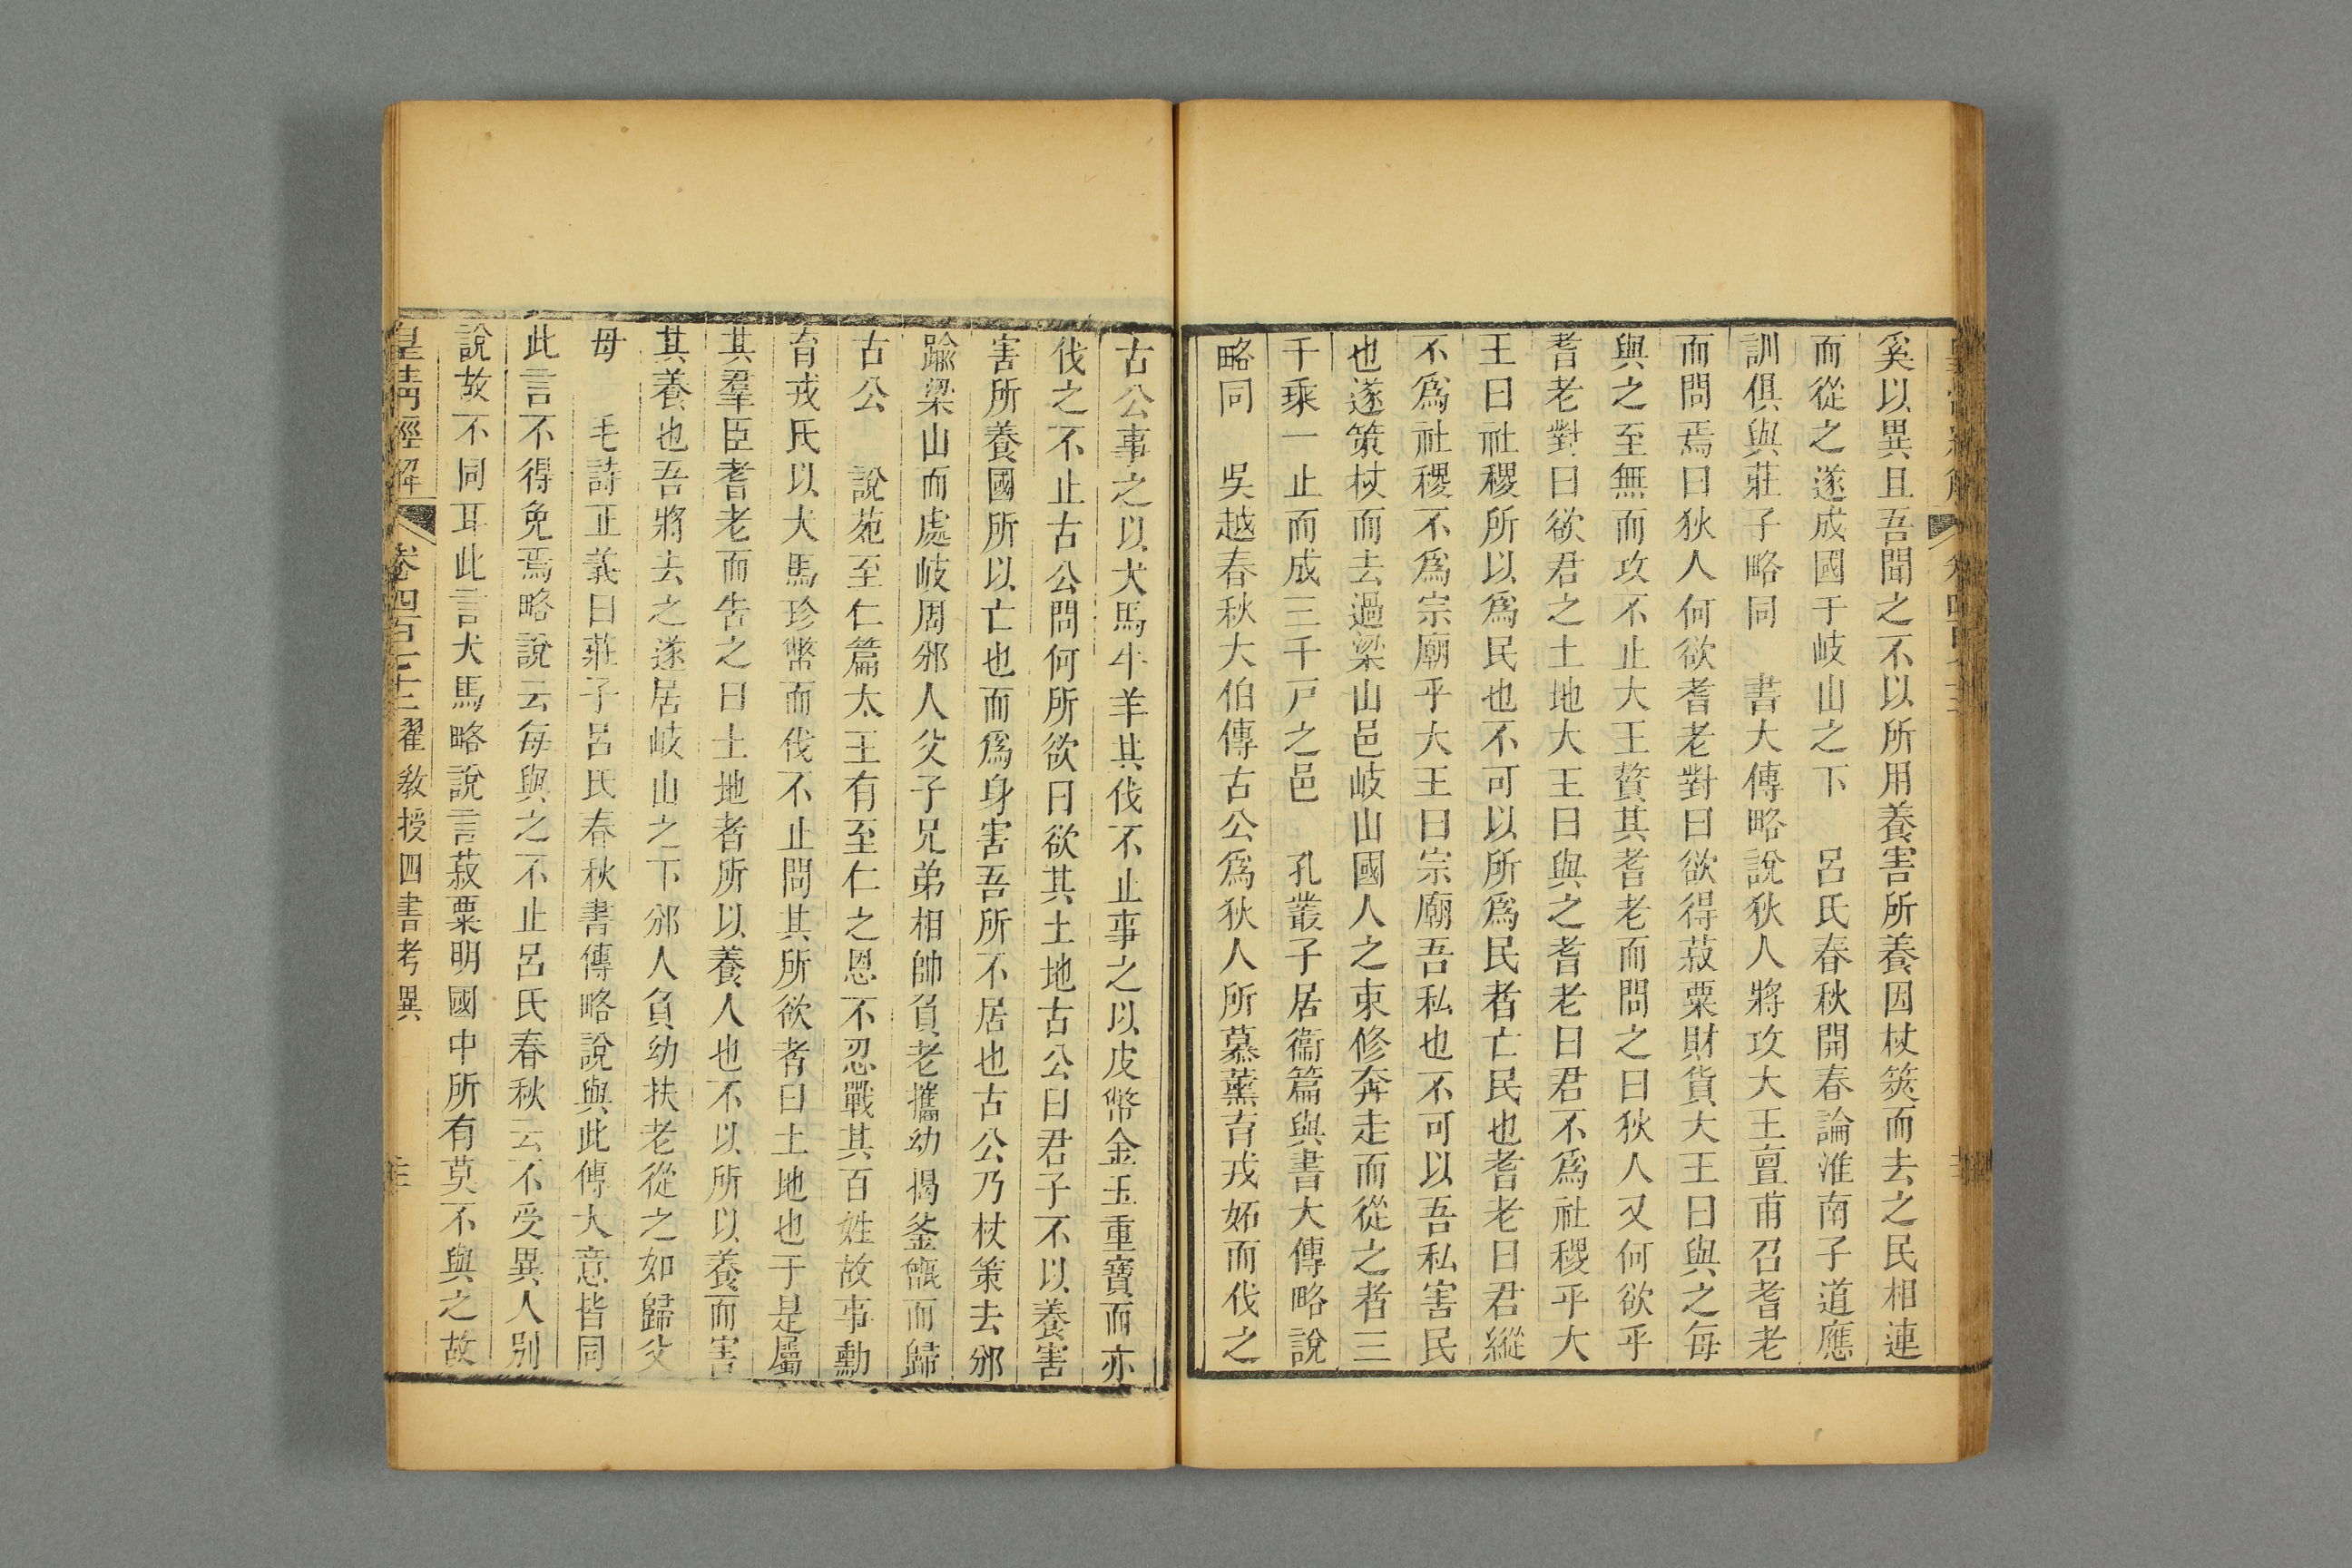 奚以異且吾聞之不以所用養害所養因杖筴而去之民相連
而從之遂成國于岐山之下　呂氏春秋開春論淮南子道應
訓俱與莊子略同　書大傳略說狄人將攻大王亶甫召耆老
而問焉曰狄人何欲耆老對曰欲得菽粟財貨大王曰與之每
與之至無而攻不止大王贅其耆老而問之曰狄人又何欲乎
耆老對曰欲君之土地大王曰與之耆老曰君不爲社稷乎大
王曰社稷所以爲民也不可以所爲民者亡民也耆老曰君縱
不爲社稷不爲宗廟乎大王曰宗廟吾私也不可以吾私害民
也遂策杖而去過梁山邑岐山國人之束修奔走而從之者三
千乘一止而成三千戸之邑　孔叢子居衞篇與書大傳略說
略同　吳越春秋大伯傳古公爲狄人所慕薰育戎妬而伐之
古公事之以犬馬牛羊其伐不止事之以皮幣金玉重寶而亦
伐之不止古公問何所欲曰欲其土地古公曰君子不以養害
害所養國所以亡也而爲身害吾所不居也古公乃杖策去邠
踰梁山而處岐周邠人父子兄弟相帥負老攜幼揭釜甑而歸
古公　說苑至仁篇太王有至仁之恩不忍戰其百姓故事勳
育戎氏以犬馬珍幣而伐不止問其所欲者曰土地也于是屬
其羣臣耆老而告之曰土地者所以養人也不以所以養而害
其養也吾將去之遂居岐山之下邠人負幼扶老從之如歸父
母　毛詩正義曰莊子呂氏春秋書傳略說與此傳大意皆同
此言不得免焉略說云每與之不止呂氏春秋云不受異人别
說故不同耳此言犬馬略說言菽粟明國中所有莫不與之故
皇淸經解　卷四百二十三　翟教授四書考異